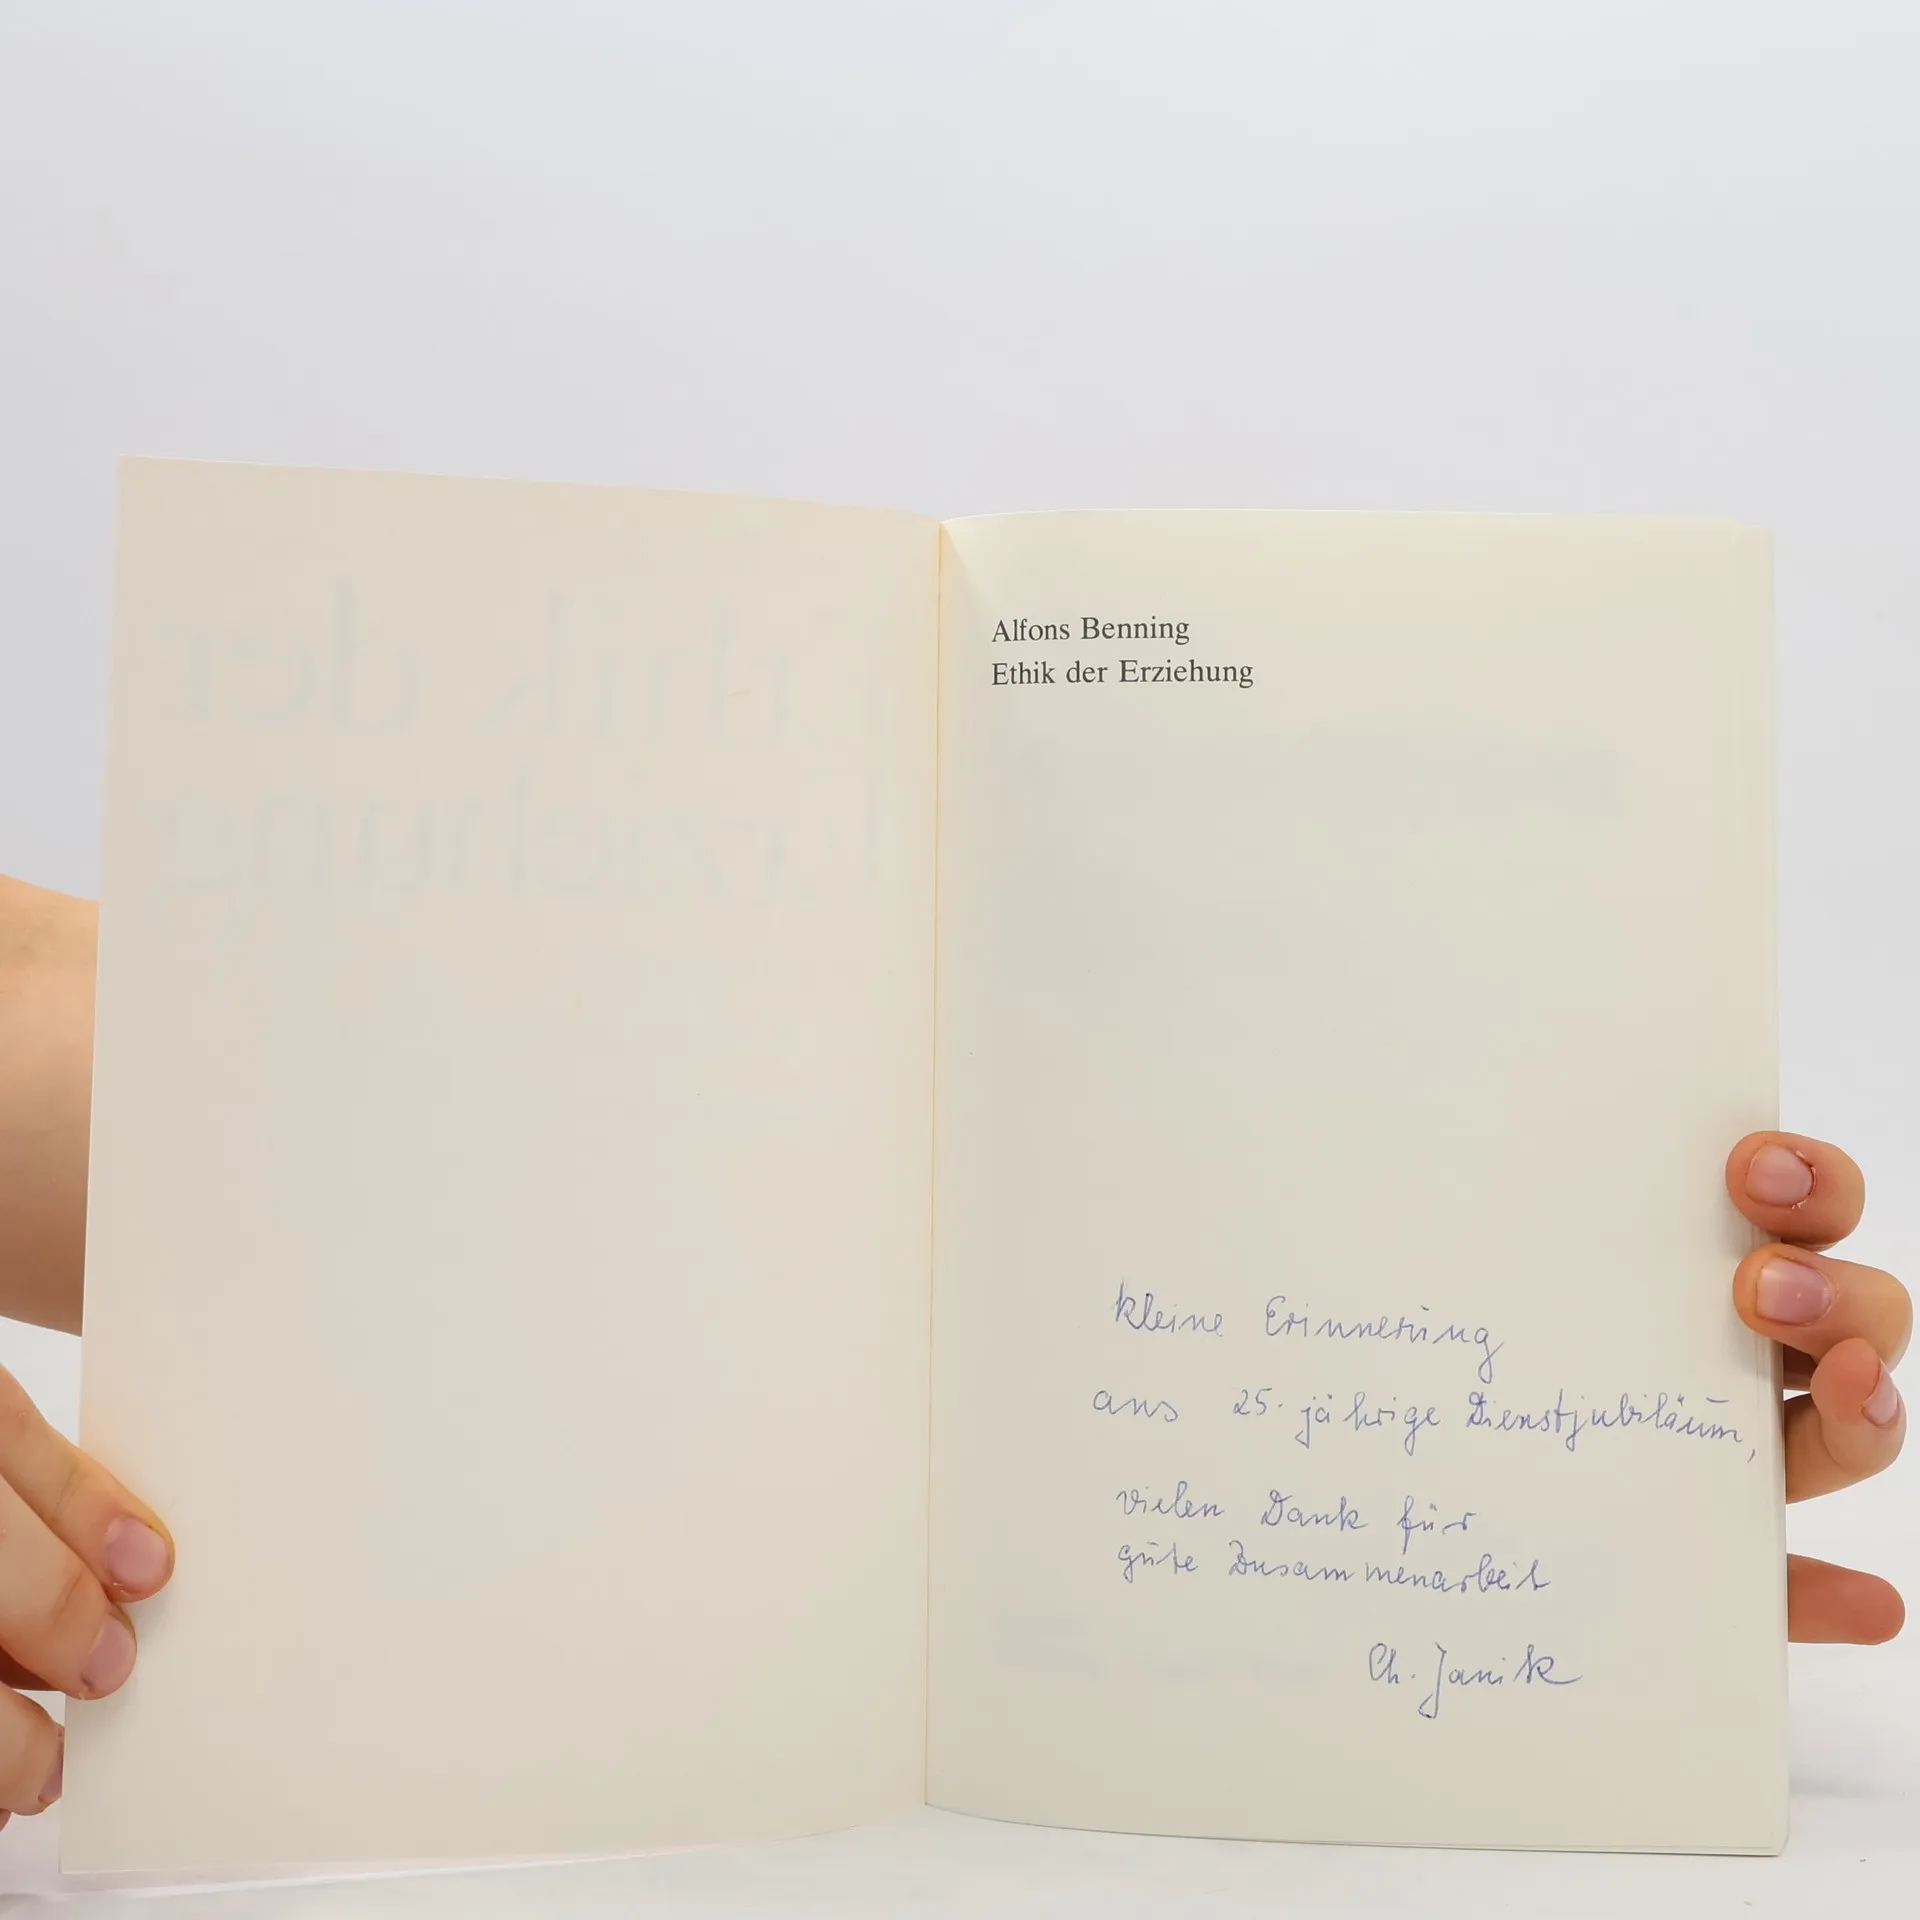 Alfons Benning
Ethik der Erziehung
kleine Erinnerung
aus 25. jährige Dienstjubiläum,
vielen Dank für
gute Zusammenarbeit
Ch. Janik